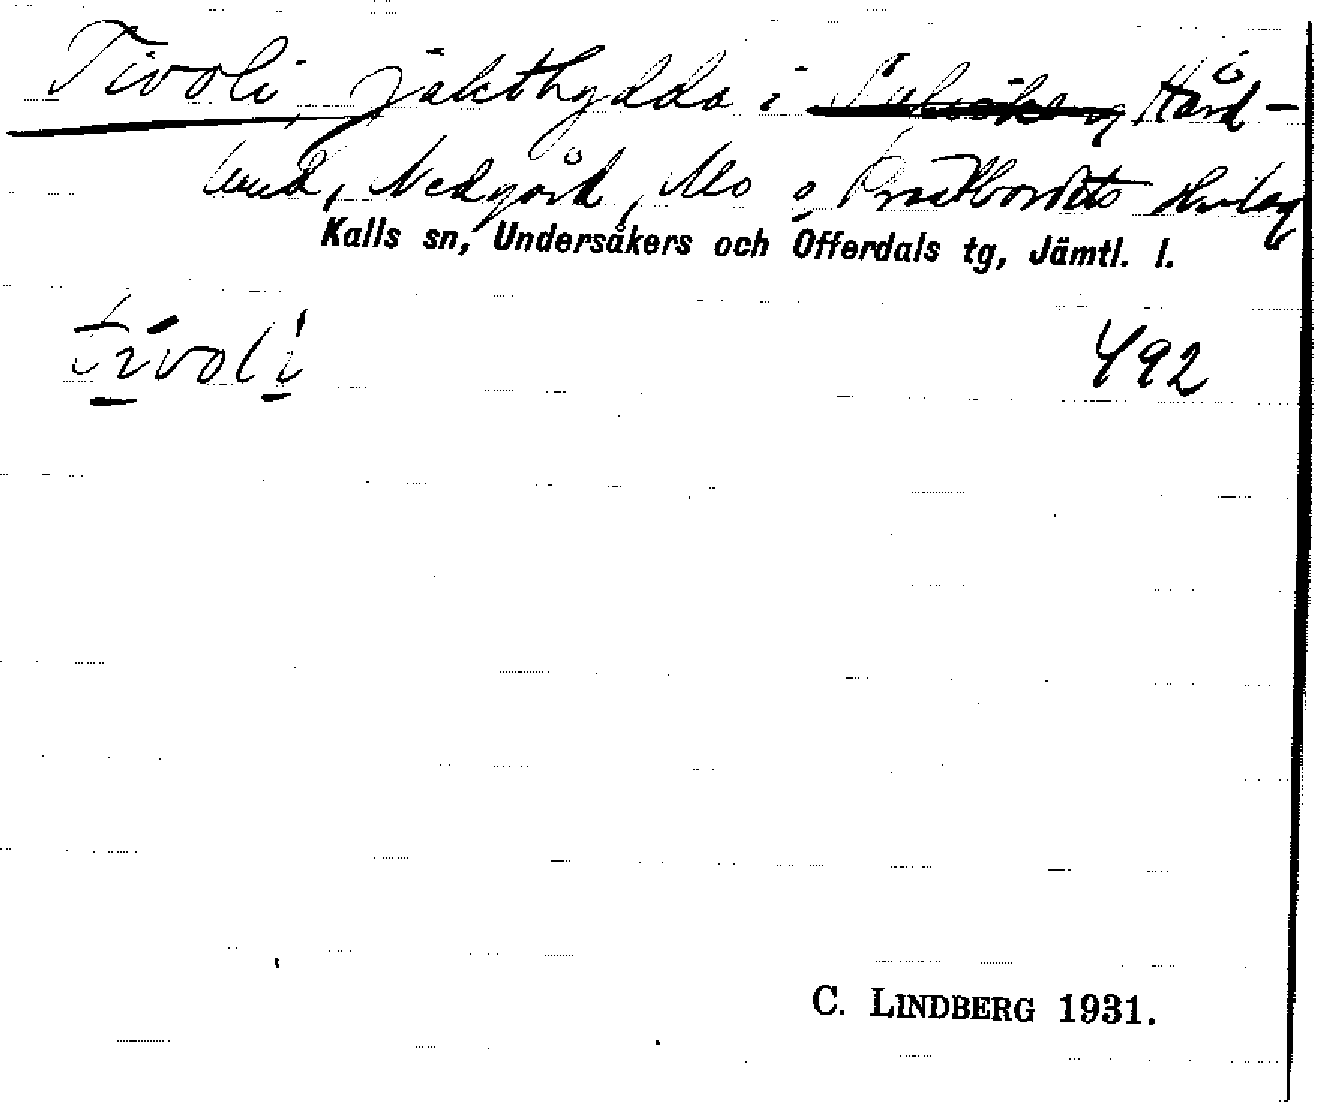 Tivoli, jakthydda i Hård-
lund, Nedgård, Mo o. Prästbordets skvlag
Kalls sn, Undersåkers och Offerdals tg, Jämtl. l.
tívolì 492
C. LINDBERG 1931.